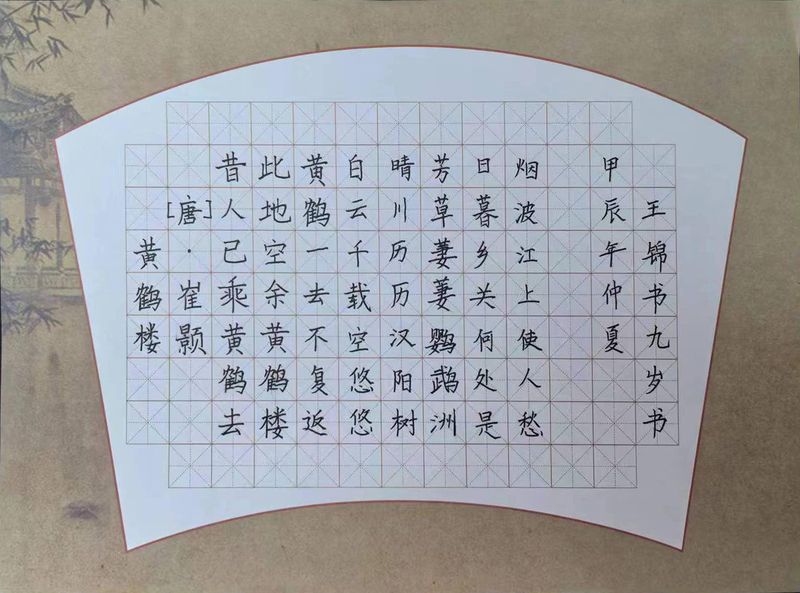 黄鹤楼
[唐]·崔颢
昔人已乘黄鹤去
此地空余黄鹤楼
黄鹤一去不复返
白云千载空悠悠
晴川历历汉阳树
芳草萋萋鹦鹉洲
日暮乡关何处是
烟波江上使人愁
甲辰年仲夏
王锦书九岁书